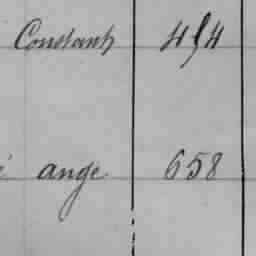 Constant 454
é ange 658